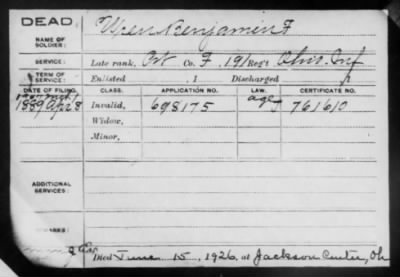 DEAD
NAME OF SOLDIER: Wren Benjamin F
SERVICE: Late rank, Pvt Co. F, 191 Reg't Ohio Inf
TERM OF SERVICE: Enlisted , 1 Discharged , 1
DATE OF FILING. CLASS. APPLICATION NO. LAW. CERTIFICATE NO.
1889 Apr 8 Invalid, 698175 age 761610
Widow,
Minor,
ADDITIONAL SERVICES:
REMARKS:
Died June 15, 1926, at Jackson Center, Oh